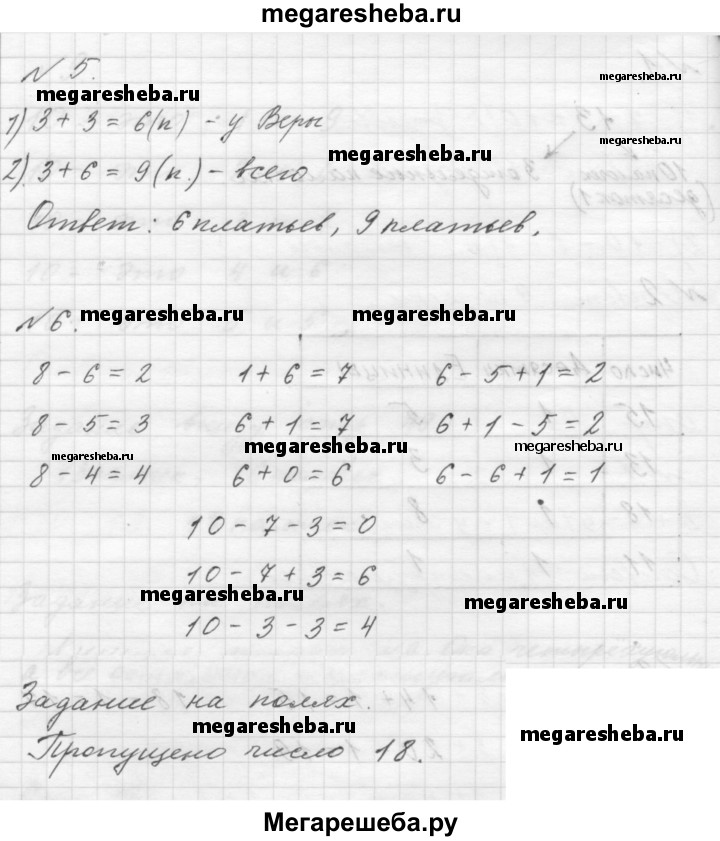 megaresheba.ru
N 5.
megaresheba.ru
megaresheba.ru
1) 3 + 3 = 6 (п) - у Веры
megaresheba.ru
2) 3 + 6 = 9 (п.) - всего
Ответ: 6 платьев, 9 платьев.
N 6. megaresheba.ru megaresheba.ru
8 - 6 = 2 1 + 6 = 7 6 - 5 + 1 = 2
8 - 5 = 3 6 + 1 = 7 6 + 1 - 5 = 2
megaresheba.ru megaresheba.ru megaresheba.ru
8 - 4 = 4 6 + 0 = 6 6 - 6 + 1 = 1
10 - 7 - 3 = 0
10 - 7 + 3 = 6
megaresheba.ru megaresheba.ru
10 - 3 - 3 = 4
Задание на полях.
megaresheba.ru megaresheba.ru
Пропущено число 18.
Мегарешеба.ру